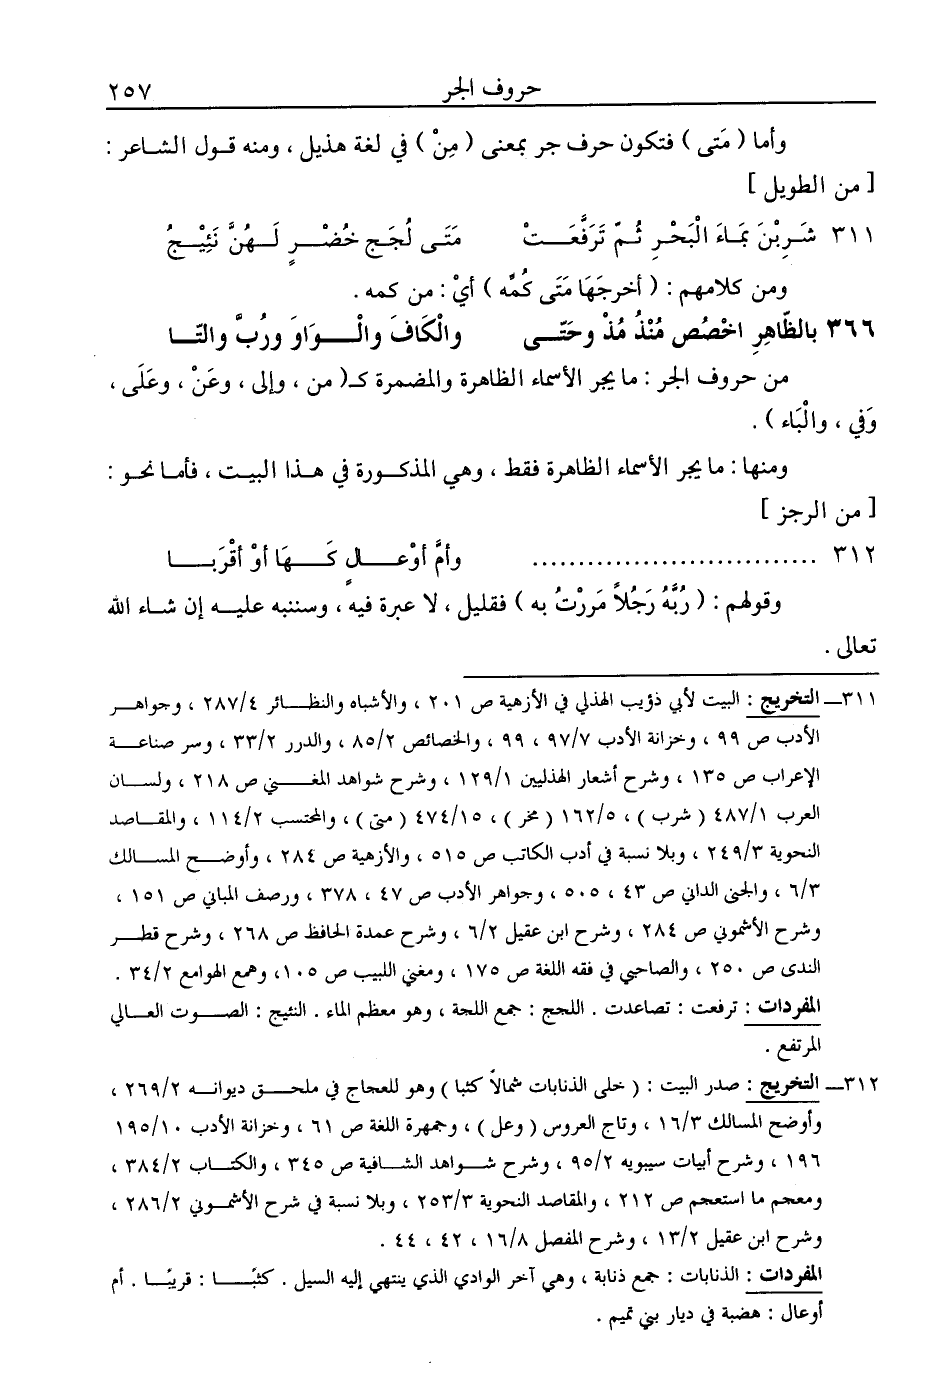 حروف الجر ٢٥٧
وأما ( مَتى ) فتكون حرف جر بمعنى ( مِنْ ) في لغة هذيل ، ومنه قول الشاعر :
[ من الطويل ]
٣١١ شَرِبْنَ بِمَاءَ الْبَحْرِ ثُمّ تَرَفَّعَتْ مَتَى لُجَجٍ خُضْرٍ لَهُنَّ نَئِيْجُ
ومن كلامهم : ( أخرجَهَا مَتَى كُمَّه ) أيْ : من كمه .
٣٦٦ بالظّاهِرِ اخْصُص مُنْذُ مُذْ وحَتّى والْكَافَ والْوَاوَ ورُبَّ والتّا
من حروف الجر : ما يجر الأسماء الظاهرة والمضمرة كـ( من ، وإلى ، وعَنْ ، وعَلَى ،
وَفي ، والْبَاء ) .
ومنها : ما يجر الأسماء الظاهرة فقط ، وهي المذكورة في هذا البيت ، فأما نحو :
[ من الرجز ]
٣١٢ .............................. وأمَّ أوْعَالٍ كَهَا أوْ أقْرَبَا
وقولهم : ( رُبَّهُ رَجُلاً مَررْتُ به ) فقليل ، لا عبرة فيه ، وسننبه عليه إن شاء الله
تعالى .
٣١١ـ التخريج : البيت لأبي ذؤيب الهذلي في الأزهية ص ٢٠١ ، والأشباه والنظائر ٢٨٧/٤ ، وجواهر
الأدب ص ٩٩ ، وخزانة الأدب ٩٧/٧ ، ٩٩ ، والخصائص ٨٥/٢ ، والدرر ٣٣/٢ ، وسر صناعة
الإعراب ص ١٣٥ ، وشرح أشعار الهذليين ١٢٩/١ ، وشرح شواهد المغني ص ٢١٨ ، ولسان
العرب ٤٨٧/١ ( شرب ) ، ١٦٢/٥ ( مخر ) ، ٤٧٤/١٥ ( متى ) ، والمحتسب ١١٤/٢ ، والمقاصد
النحوية ٢٤٩/٣ ، وبلا نسبة في أدب الكاتب ص ٥١٥ ، والأزهية ص ٢٨٤ ، وأوضح المسالك
٦/٣ ، والجنى الداني ص ٤٣ ، ٥٠٥ ، وجواهر الأدب ص ٤٧ ، ٣٧٨ ، ورصف المباني ص ١٥١ ،
وشرح الأشموني ص ٢٨٤ ، وشرح ابن عقيل ٦/٢ ، وشرح عمدة الحافظ ص ٢٦٨ ، وشرح قطر
الندى ص ٢٥٠ ، والصاحبي في فقه اللغة ص ١٧٥ ، ومغني اللبيب ص ١٠٥، وهمع الهوامع ٣٤/٢ .
المفردات : ترفعت : تصاعدت . اللجج : جمع اللجة ، وهو معظم الماء . النئيج : الصوت العالي
المرتفع .
٣١٢ـ التخريج : صدر البيت : ( خلى الذنابات شمالاً كثبا ) وهو للعجاج في ملحق ديوانه ٢٦٩/٢ ،
وأوضح المسالك ١٦/٣ ، وتاج العروس ( وعل ) ، وجمهرة اللغة ص ٦١ ، وخزانة الأدب ١٩٥/١٠
١٩٦ ، وشرح أبيات سيبويه ٩٥/٢ ، وشرح شواهد الشافية ص ٣٤٥ ، والكتاب ٣٨٤/٢ ،
ومعجم ما استعجم ص ٢١٢ ، والمقاصد النحوية ٢٥٣/٣ ، وبلا نسبة في شرح الأشموني ٢٨٦/٢ ،
وشرح ابن عقيل ١٣/٢ ، وشرح المفصل ١٦/٨ ، ٤٢ ، ٤٤ .
المفردات : الذنابات : جمع ذنابة ، وهي آخر الوادي الذي ينتهي إليه السيل . كثبًا : قريبًا . أم
أوعال : هضبة في ديار بني تميم .